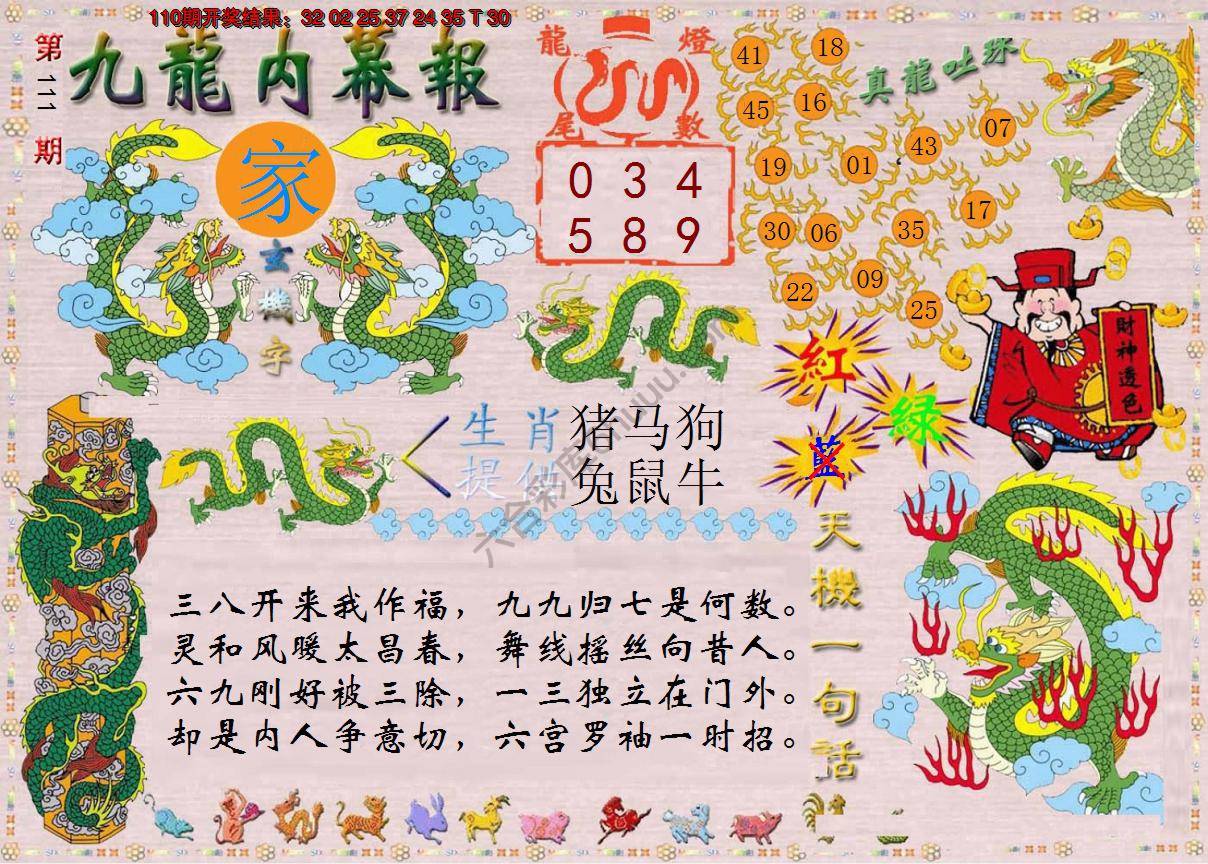 110期开奖结果：32 02 25 37 24 35 T 30
第111期
九龍内幕報
龍燈
尾數
0 3 4
5 8 9
真龍吐珠
41 18
45 16
19 01 43 07
30 06 35 17
22 09 25
家
玄機字
財神透色
紅
綠
藍
生肖 猪马狗
提供 兔鼠牛
天機一句話
三八开来我作福，九九归七是何数。
灵和风暖太昌春，舞线摇丝向昔人。
六九刚好被三除，一三独立在门外。
却是内人争意切，六宫罗袖一时招。